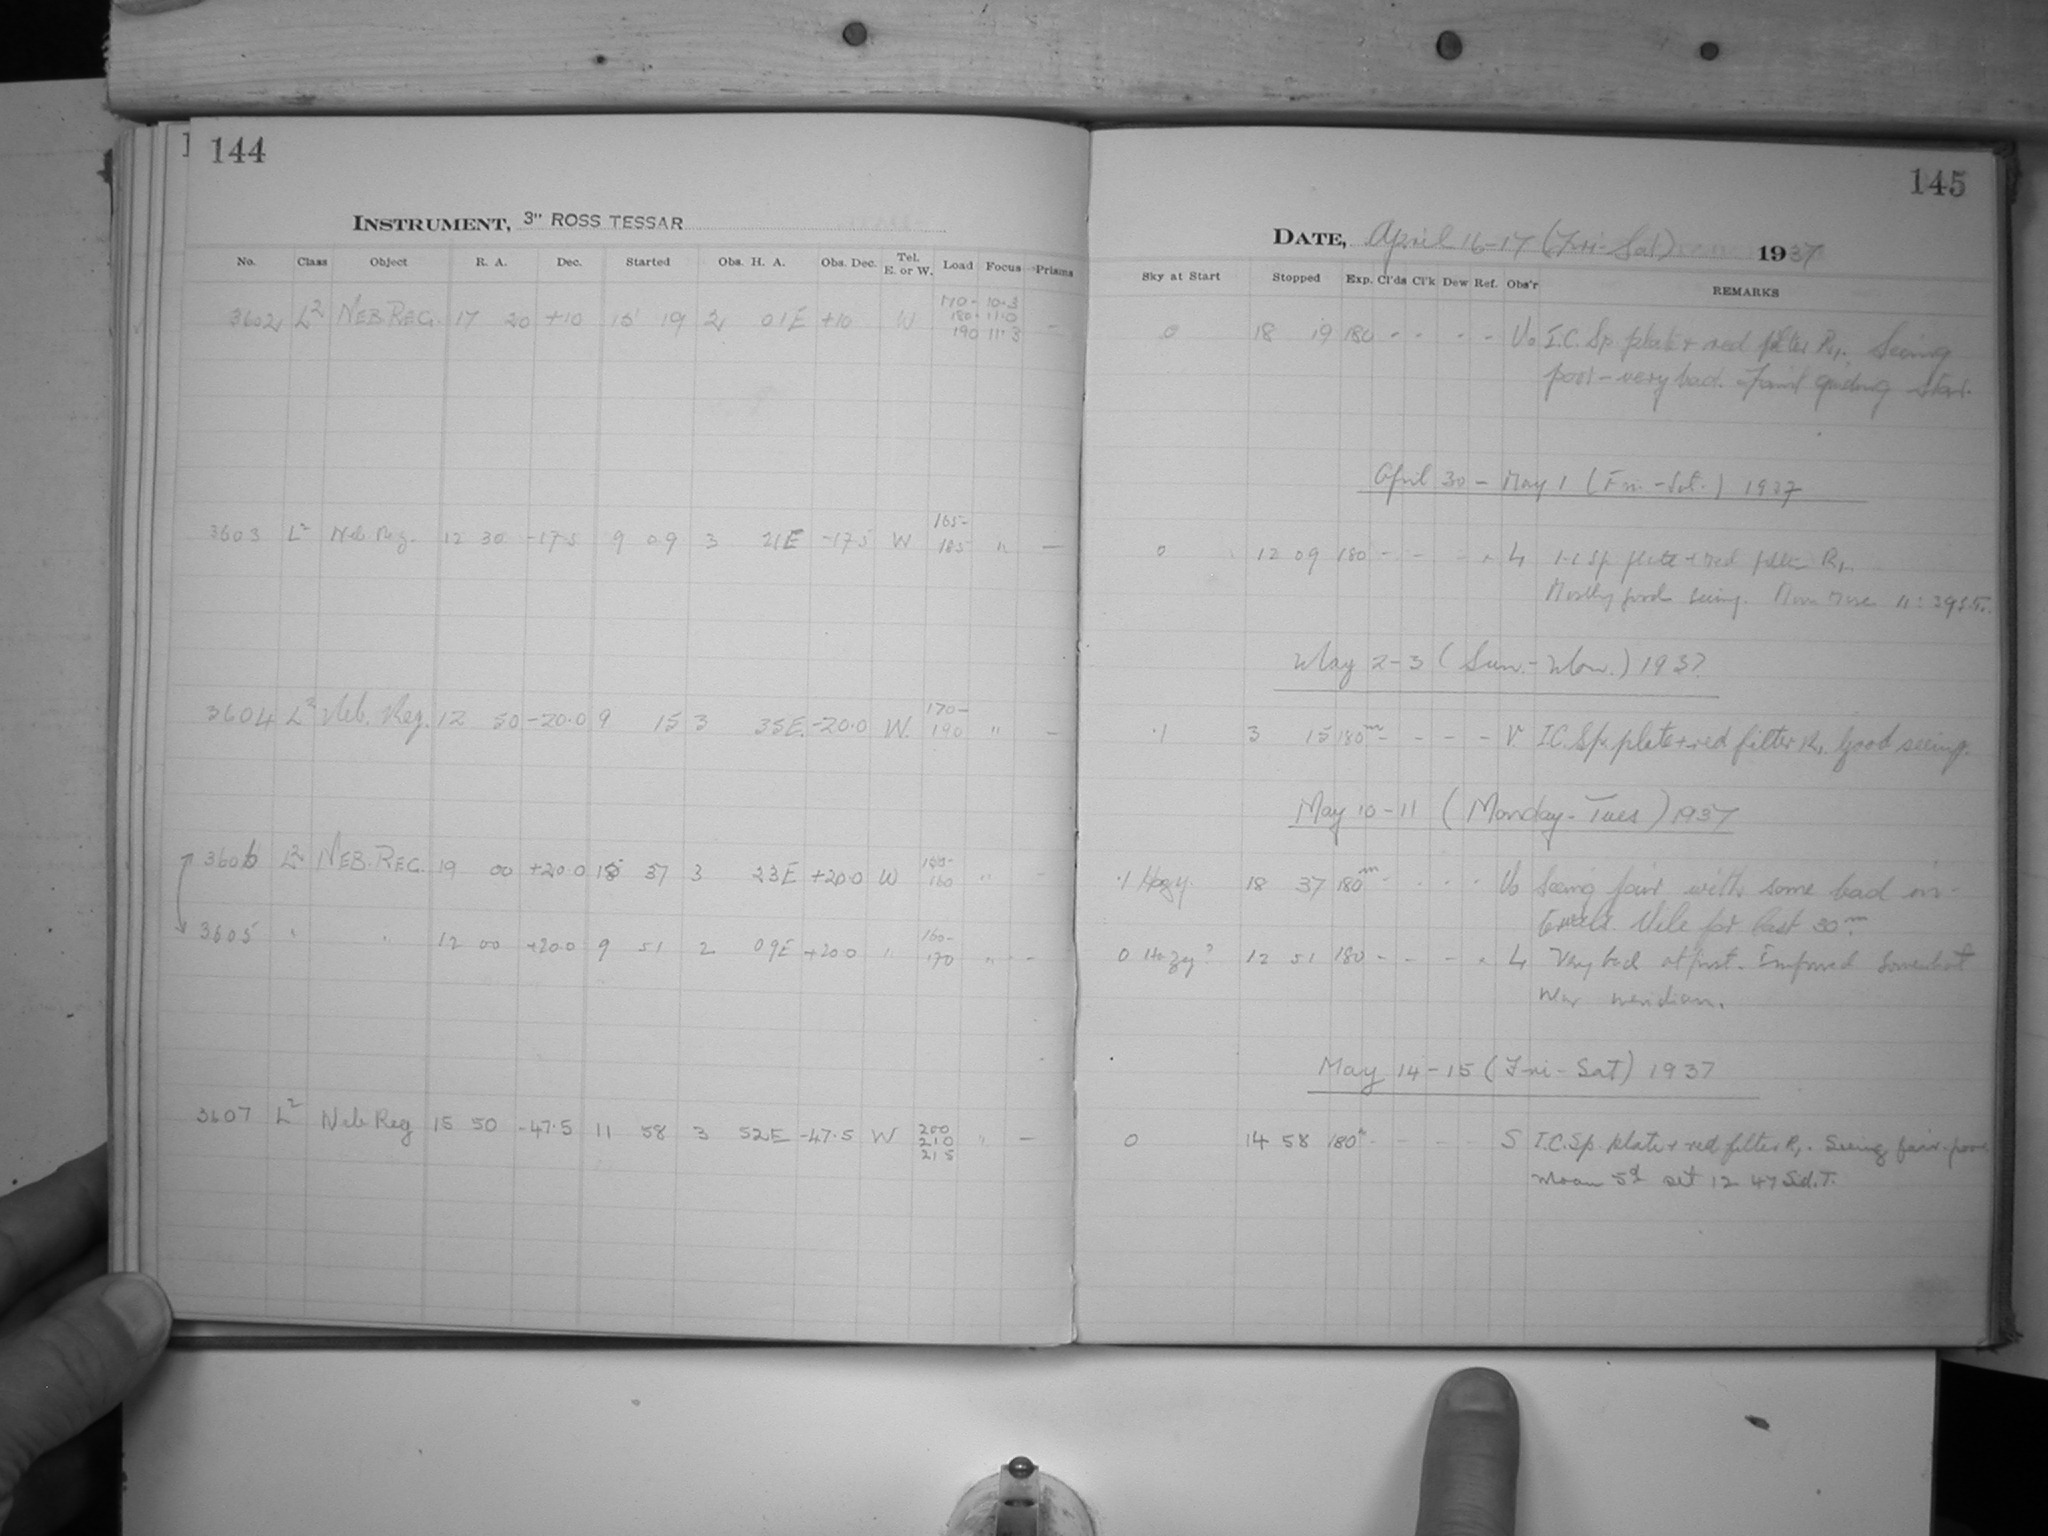 1 144
INSTRUMENT, 3" ROSS TESSAR
No. Class Object R. A. Dec. Started Obs. H. A. Obs. Dec. Tel. E. or W. Load Focus Prisms
3602 L2 NEB.REG. 17 20 +10 15 19 2 01E +10 W 170- 10.3
180- 11.0
190 11.3 -
3603 L2 Neb Reg. 12 30 -17.5 9 09 3 21E -17.5 W 165-
185 " -
3604 L2 Neb. Reg. 12 50 -20.0 9 15 3 35E -20.0 W. 170-
190 " -
3606 L2 NEB.REG. 19 00 +20.0 15 37 3 23E +20.0 W
160 " -
3605 " " 12 00 +20.0 9 51 2 09E +20.0 " 160-
170 " -
3607 L2 Neb Reg 15 50 -47.5 11 58 3 52E -47.5 W 200
210
215 " -
145
DATE, April 16-17 (Fri-Sat) 1937
Sky at Start Stopped Exp. Cl'ds Cl'k Dew Ref. Obs'r REMARKS
0 18 19 180 - - - - Vo I.C. Sp. plate + red filter R1. Seeing
poor - very bad. Faint guiding star.
April 30 - May 1 (Fri.-Sat.) 1937
0 12 09 180 - - - - L I.C Sp plate + red filter R1.
Mostly good seeing. Moon rose 11:39 S.T.
May 2-3 (Sun.-Mon.) 1937
.1 3 15 180m - - - - V. I.C. Sp. plate + red filter R1. Good seeing.
May 10-11 (Monday-Tues) 1937
.1 Hazy. 18 37 180m - - - - Vo Seeing fair with some bad in-
tervals. Vile for last 30m
0 Hazy? 12 51 180 - - - - L Very bad at first. Improved somewhat
near meridian.
May 14-15 (Fri-Sat) 1937
0 14 58 180m - - - - S I.C. Sp. plate + red filter R1. Seeing fair-poor
Moon 5d set 12 47 Sid.T.